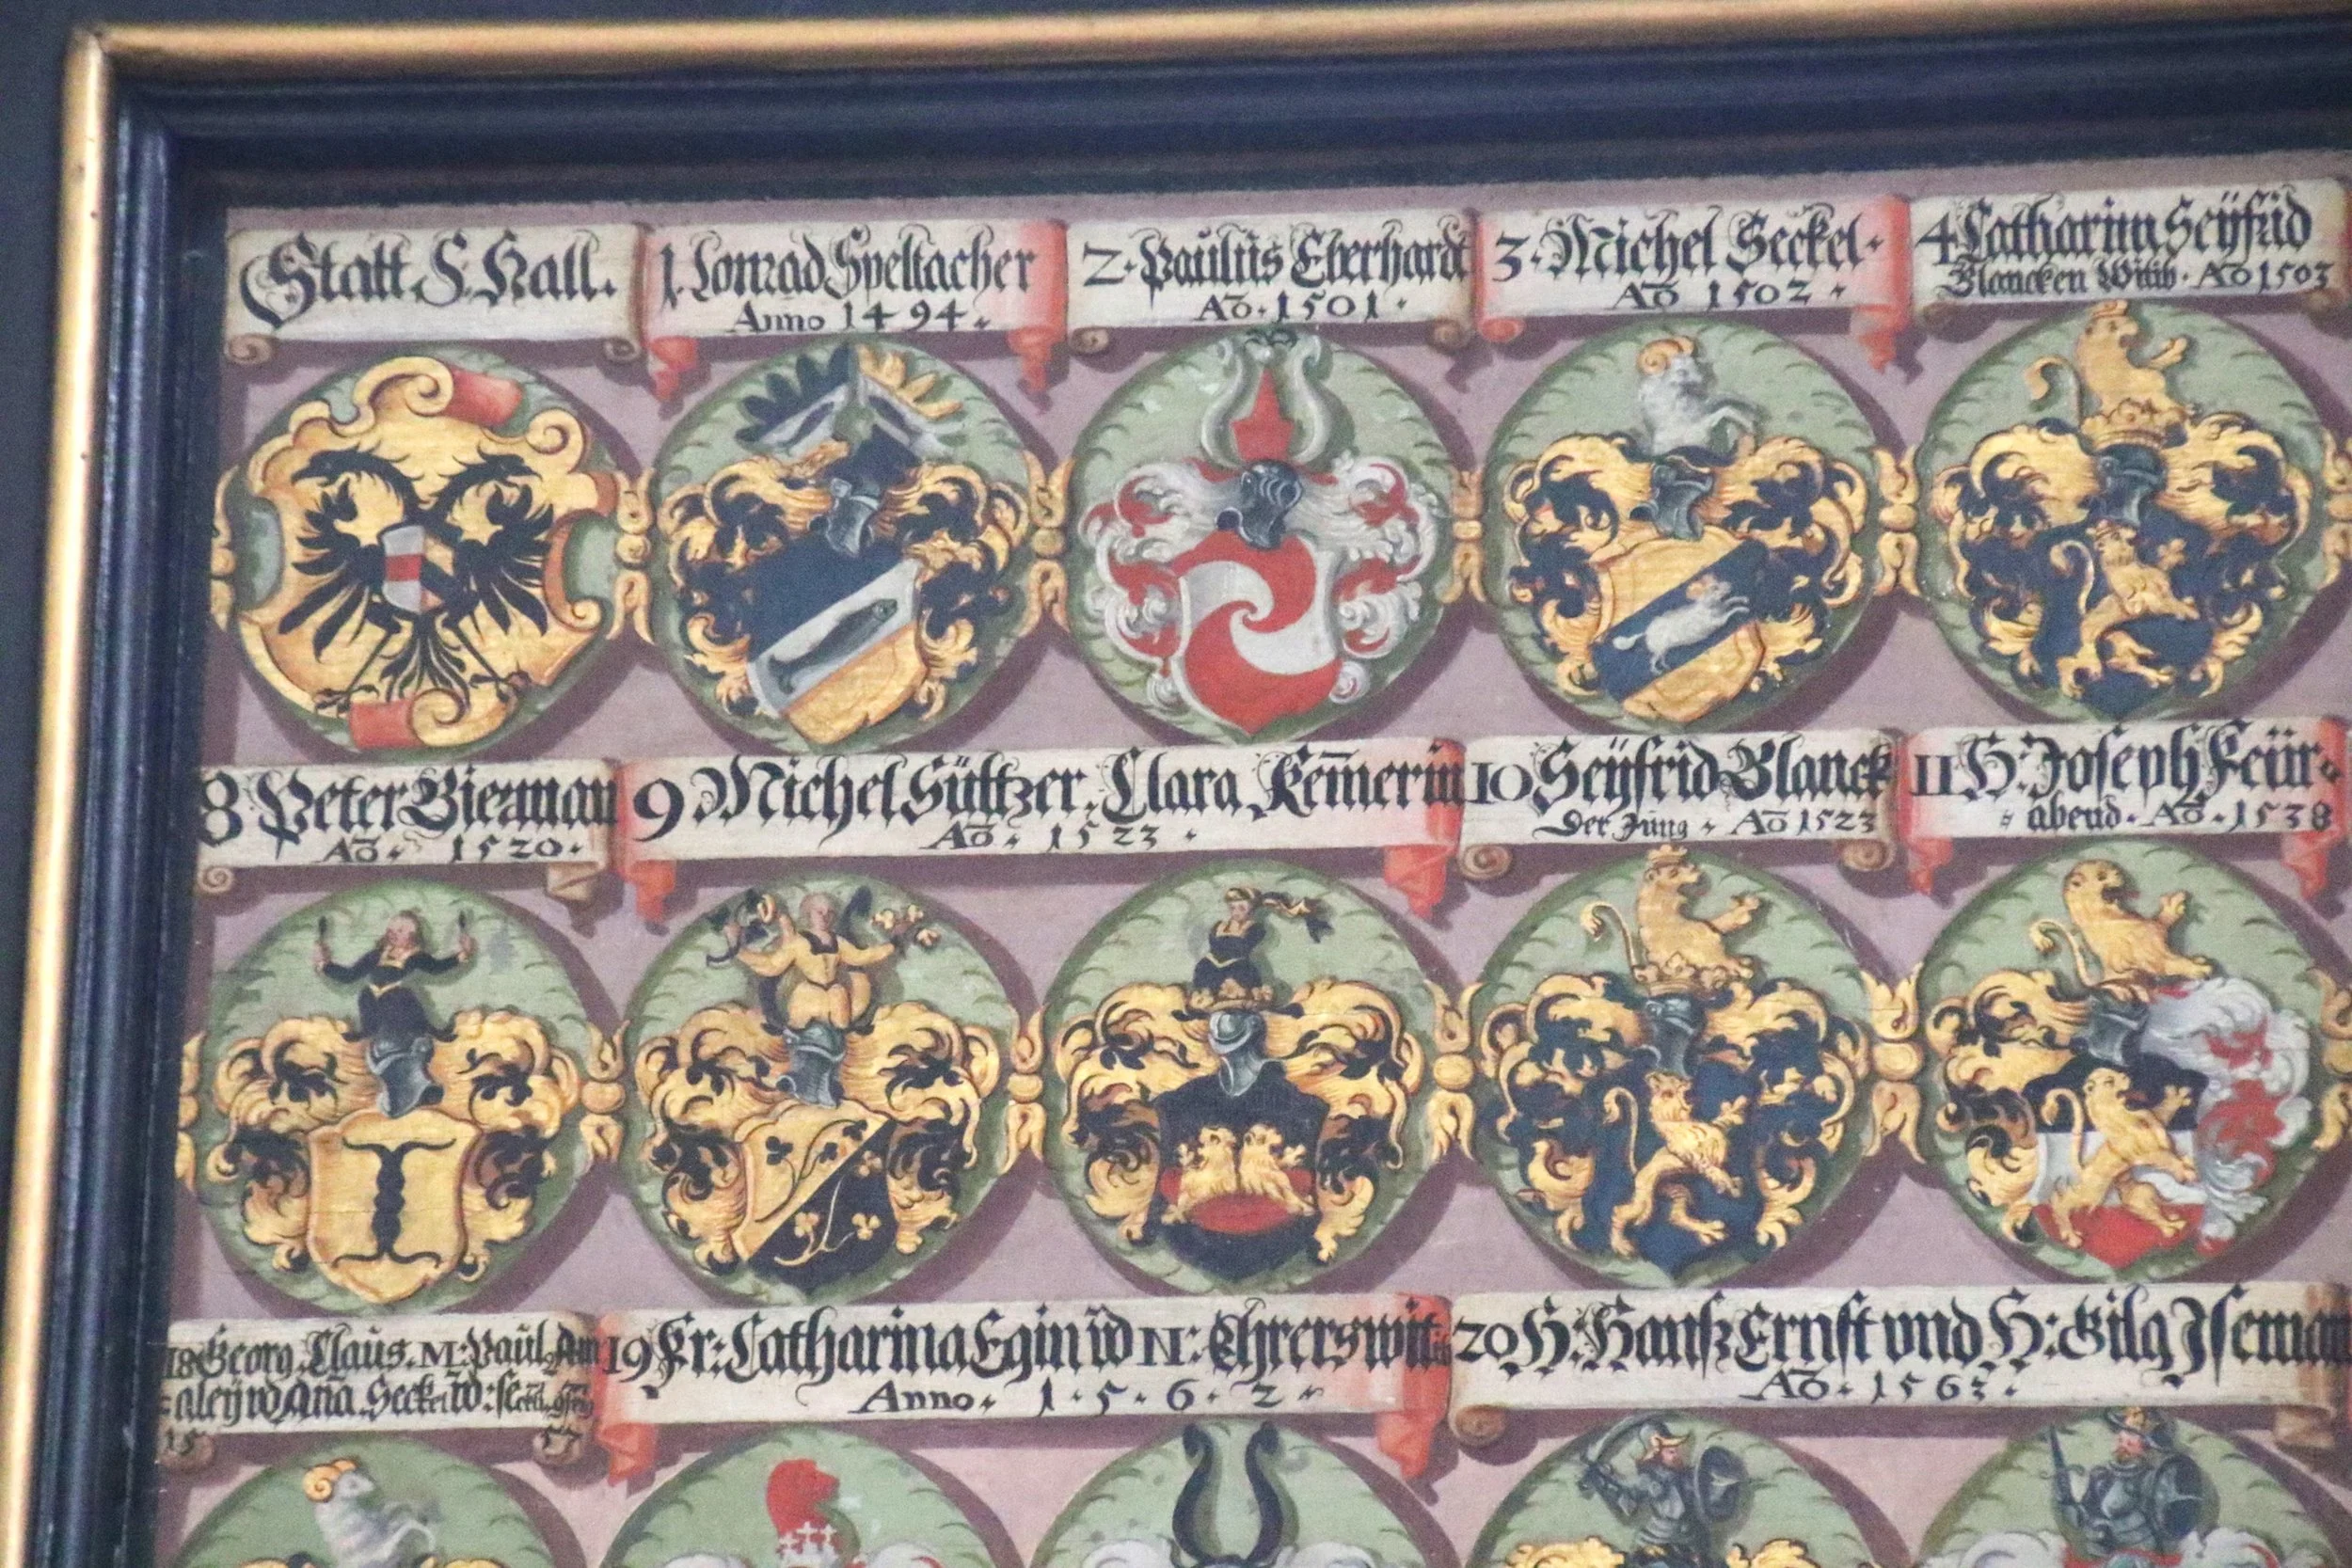 Statt S. Hall.
1. Conrad Speltacher
Anno 1494.
2. Paulus Eberhardt
Aō. 1501.
3. Michel Seckel.
Aō 1502.
4 Catharina Seÿfrid
Blancken Witib. Aō 1503
8 Peter Bierman
Aō. 1520.
9 Michel Sültzer, Clara Kem̄erin
Aō. 1523.
10 Seÿfrid Blanck
Der Jung. Aō 1523
11 H. Joseph Feür-
abend. Aō. 1538
18 Georg, Claus, M: Paul,
Añā Seckel
15 57
19 Fr: Catharina Egin v̄d N: Ehrerswit
Anno. 1.5.6.2.
20 H: Hanſz Ernſt vnd H: Gilg Iſeman
Aō. 1563.